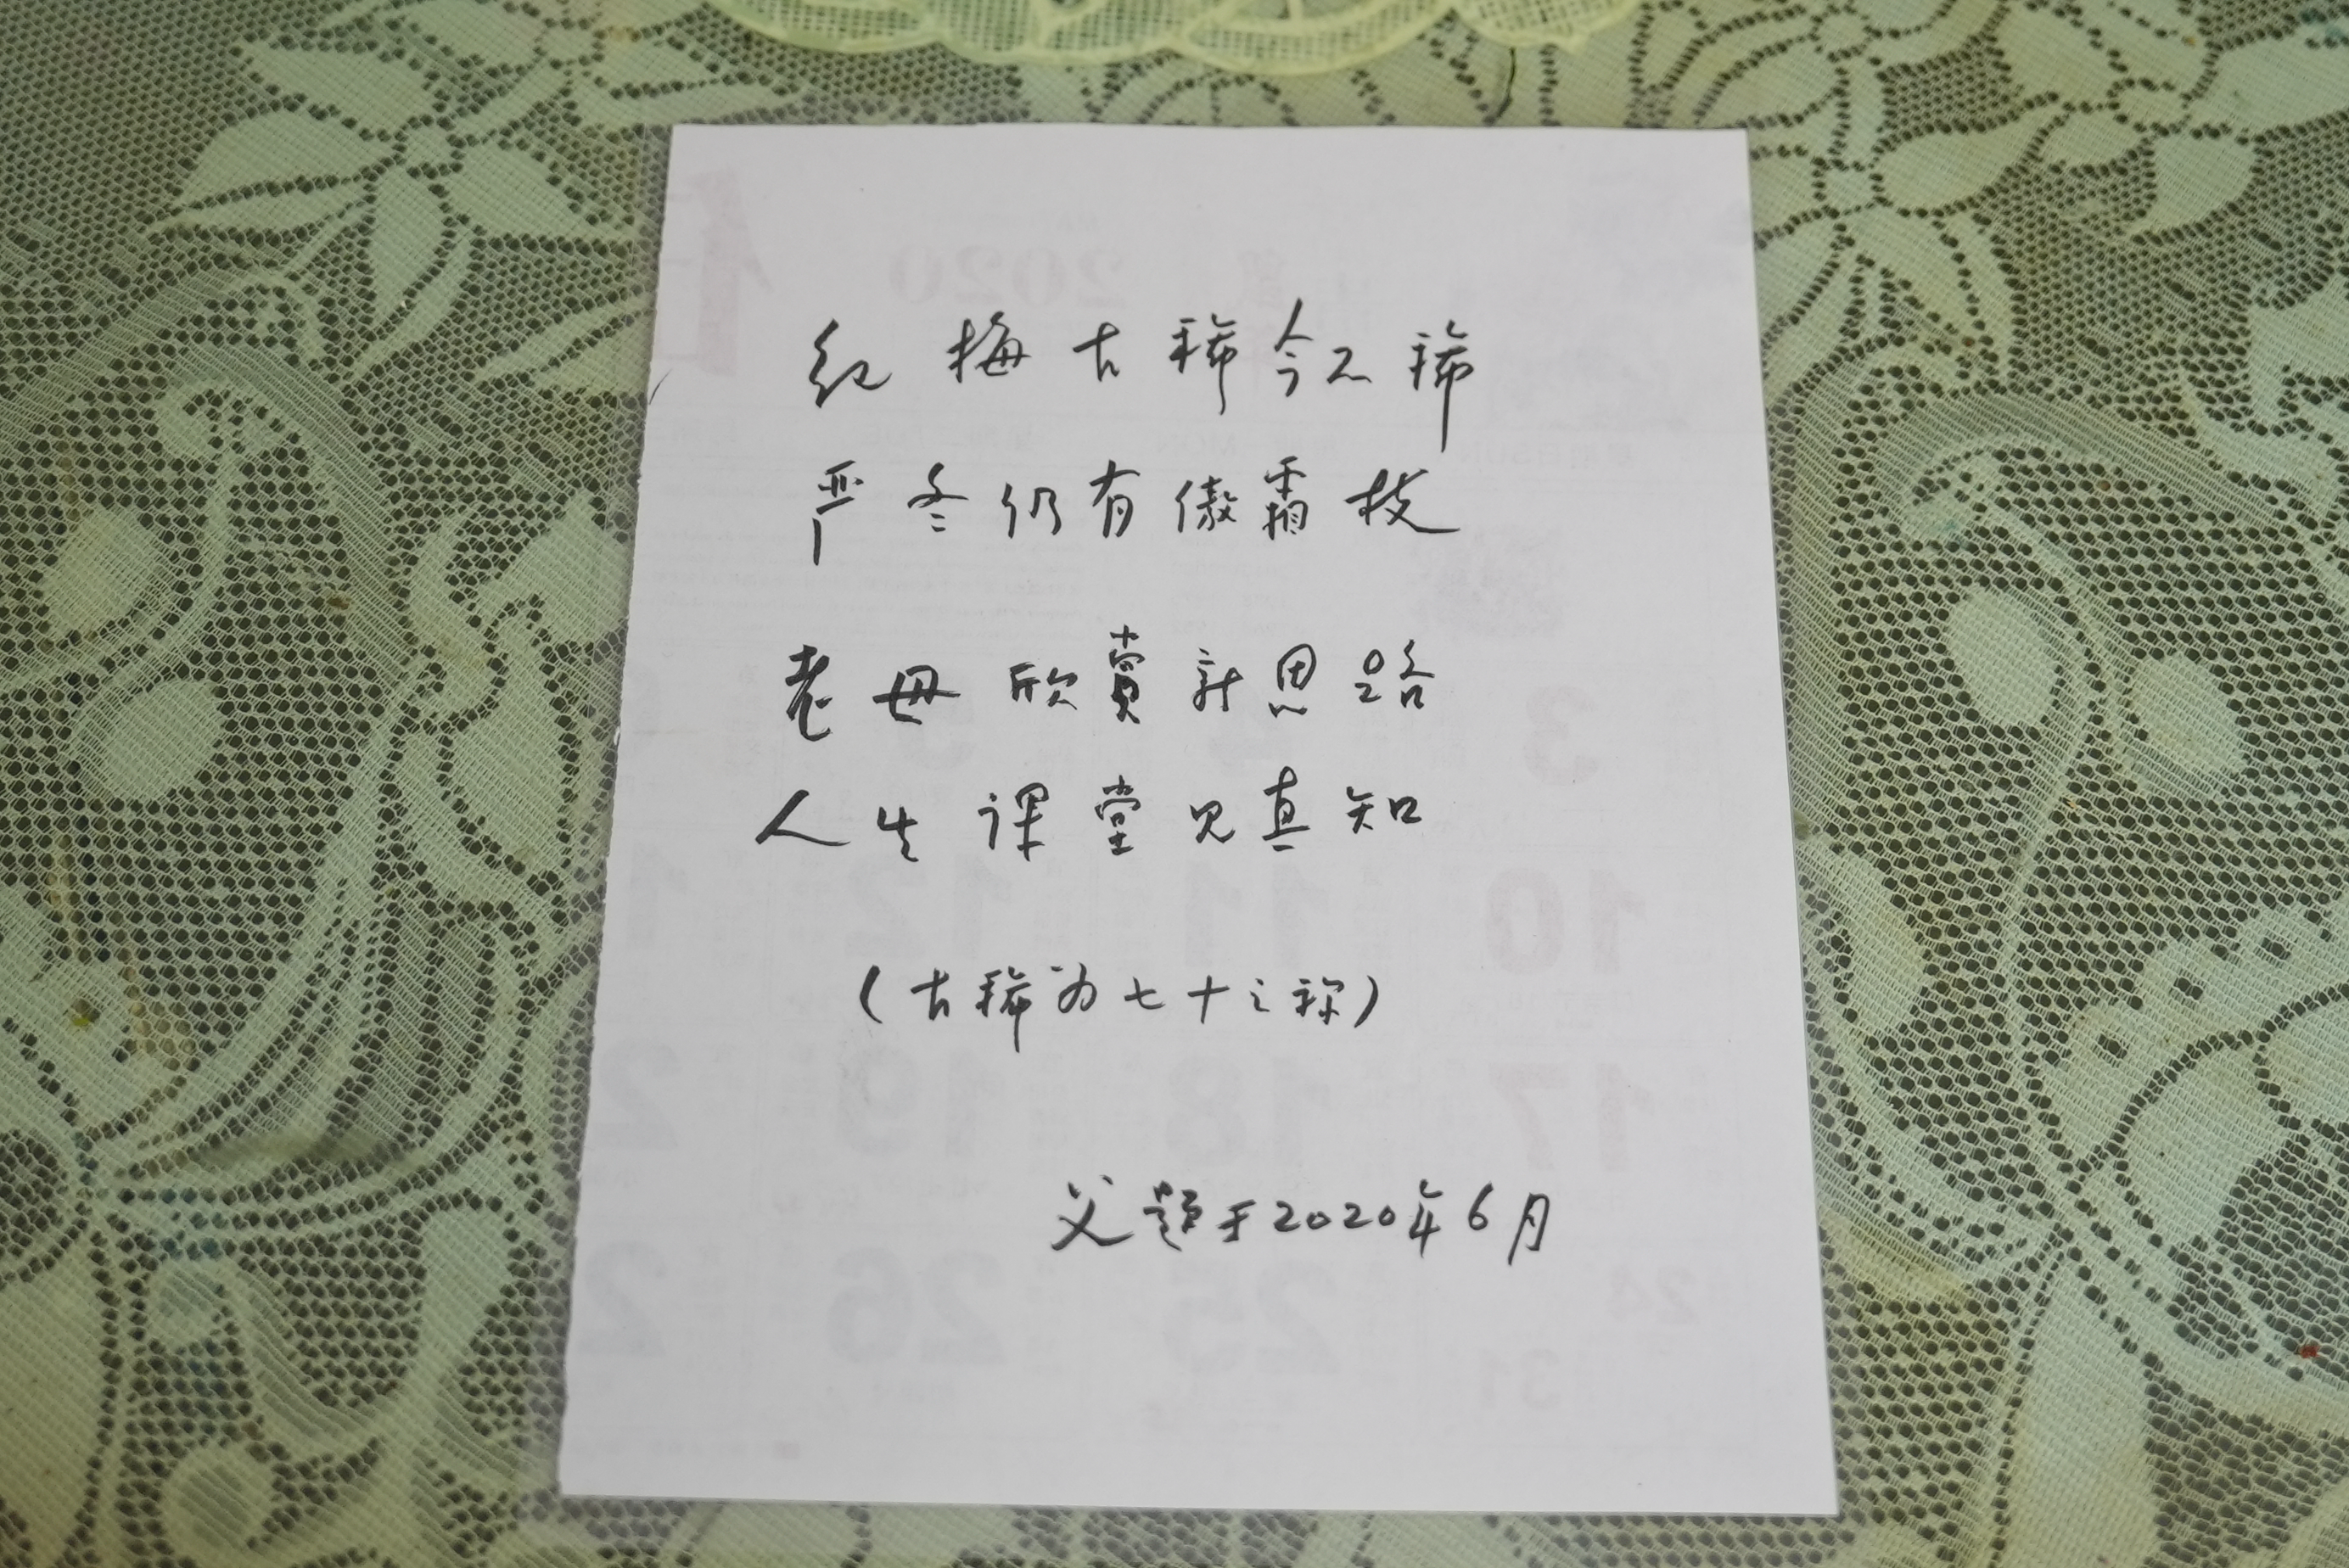 红梅古稀今不稀
严冬仍有傲霜枝
老母欣赏新思路
人生课堂见真知
（古稀为七十之称）
父题于2020年6月